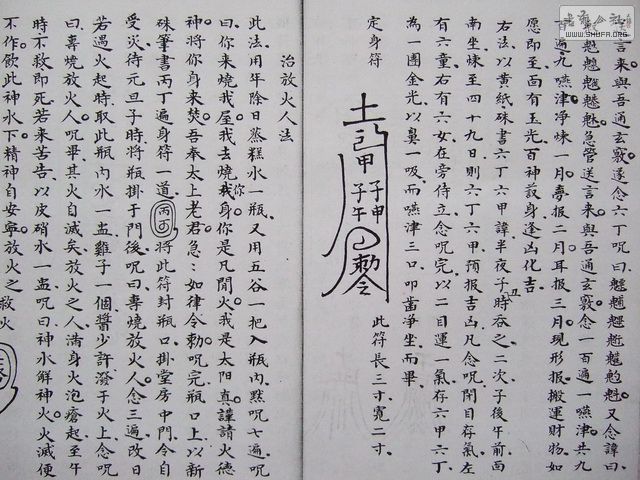 言来與吾通玄竅遂念六丁呪曰魁魓魒魕魀魁又念諱曰
急管送言来與吾通玄竅念一百遍一嚥津共九
百遍九嚥津净煉一月夢报二月耳报三月現形报搬運财物如
愿即至面有玉光百神護身逢凶化吉
右法以黄紙硃書六丁六甲諱半夜子時吞之二次子後午前面
南坐煉至四十九日則六丁六甲預报吉凶凡念呪閉目存氣左
有六童右有六女在旁侍立念呪完以二目運一氣存六甲六丁
為一團金光以鼻一吸而嚥津三口叩齒净坐而畢
定身符
土 甲 子午 子申 勅令
此符長三寸寬二寸
治放火人法
此法用年除日蒸糕水一瓶又用五谷一把入瓶内黙呪七遍呪
曰你来燒我屋我去燒你身你是凡間火我是太阳真謹請火德
神將你身来焚吾奉太上老君急急如律令勅呪完瓶口上以新
硃筆書丙丁遍身符一道 丙丁 將此符封瓶口掛堂房中門令自
受災待元旦子時將瓶掛于門後呪曰專燒放火人念三遍改日
若遇火起時取此瓶内水一盅雞子一個醬少許潑于火上念呪
曰專燒放火人呪畢其火自滅矣放火之人满身火泡瘡起至午
時不救即死若来苦告以皮硝水一盅呪曰神水解神火火滅便
不作飲此神水下精神自安寧放火之救火
WWW.SHUFA.ORG